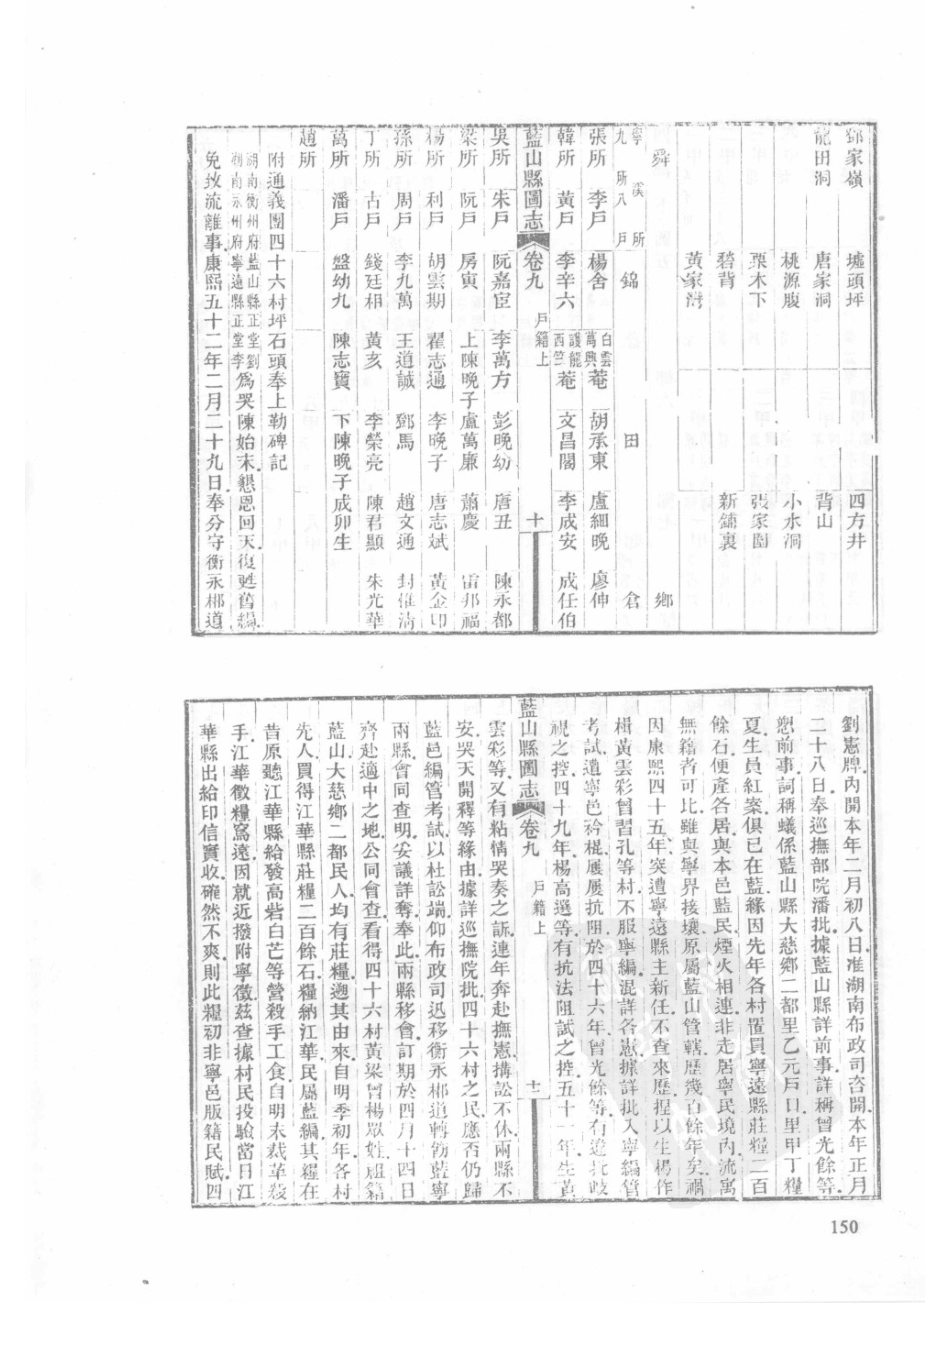 鄧家嶺 墟頭坪 四方井
龍田洞 唐家洞 背山
桃源腹 小水洞
栗木下 張家園
碧背 新鋪裏
黃家沖
舜 鄉
寧溪所 九所八戶 錦 田 倉
張所 李戶 楊舍 白雲萬興菴 胡承東 盧細晚 廖伸
韓所 黃戶 李辛六 護龍西竺菴 文昌閣 李成安 成任伯
藍山縣圖志 卷九 戶籍上 十
吳所 朱戶 阮嘉宦 李萬方 彭晚幼 唐丑 陳永都
梁所 阮戶 房寅 上陳晚子 盧萬廉 蕭慶 雷邦福
楊所 利戶 胡雲期 翟志通 李晚子 唐志斌 黃金印
孫所 周戶 李九萬 王道誠 鄧馬 趙文通 封淮清
丁所 古戶 錢廷相 黃亥 李榮亮 陳君顯 朱光華
萬所 潘戶 盤幼九 陳志寶 下陳晚子 成卯生
趙所
附通義團四十六村坪石頭奉上勒碑記
湖南衡州府藍山縣正堂劉湖南永州府寧遠縣正堂李爲哭陳始末懇恩回天復甦舊編
免致流離事康熙五十二年二月二十九日奉分守衡永郴道
劉憲牌內開本年二月初八日准湖南布政司咨開本年正月
二十八日奉巡撫部院潘批據藍山縣詳前事詳稱曾光餘等
懇前事詞稱蟻係藍山縣大慈鄉二都里乙元戶口里甲丁糧
夏生員紅案俱已在藍緣因先年各村置買寧遠縣莊糧二百
餘石便產各居與本邑藍民煙火相連非走居寧民境內流寓
無籍者可比雖與寧界接壤原屬藍山管轄歷幾百餘年矣禍
因康熙四十五年突遭寧遠縣主新任不查來歷捏以生楊作
楫黃雲彩曾習孔等村不服寧編混詳各憲據詳批入寧編管
考試遺寧邑衿棍屢屢抗阻於四十六年曾光餘等有遼北歧
視之控四十九年楊高選等有抗法阻試之控五十一年生黃
藍山縣圖志 卷九 戶籍上 十一
雲彩等又有粘情哭奏之訴連年奔赴撫憲搆訟不休兩縣不
安哭天開釋等緣由據詳巡撫院批四十六村之民應否仍歸
藍邑編管考試以杜訟端仰布政司迅移衡永郴道轉飭藍寧
兩縣會同查明妥議詳奪奉此兩縣移會訂期於四月十四日
齊赴適中之地公同會查看得四十六村黃梁曾楊眾姓祖籍
藍山大慈鄉二都民人均有莊糧遡其由來自明季初年各村
先人買得江華縣莊糧二百餘石糧納江華民屬藍編其糧在
昔原聽江華縣給發高砦白芒等營殺手工食自明末裁革殺
手江華徵糧窵遠因就近撥附寧徵茲查據村民投驗當日江
華縣出給印信實收確然不爽則此糧初非寧邑版籍民賦四
150